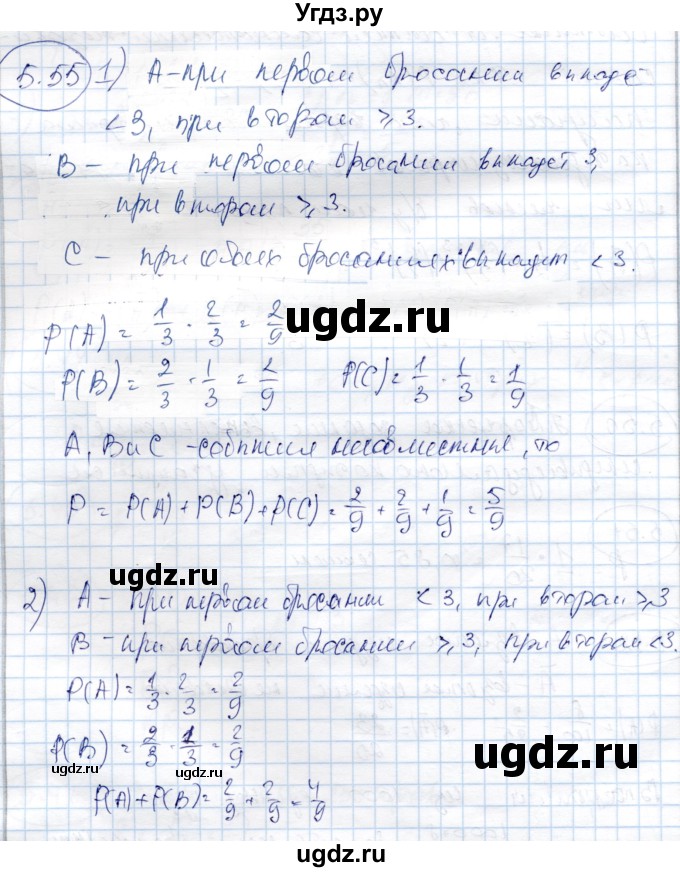 Угдз.ру
5.55 1) A – при первом бросании выпаде
< 3, при втором ⩾ 3.
B – при первом бросании выпадет 3,
при втором ⩾ 3.
C – при обоих бросаниях выпадет < 3.
P(A) = 1/3 · 2/3 = 2/9
ugdz.ru
P(B) = 2/3 · 1/3 = 2/9 P(C) = 1/3 · 1/3 = 1/9
A, B и C – события несовместные, то
P = P(A) + P(B) + P(C) = 2/9 + 2/9 + 1/9 = 5/9
ugdz.ru
2) A – при первом бросании < 3, при втором ⩾ 3
B – при первом бросании ⩾ 3, при втором < 3.
P(A) = 1/3 · 2/3 = 2/9
P(B) = 2/3 · 1/3 = 2/9
ugdz.ru ugdz.ru
P(A) + P(B) = 2/9 + 2/9 = 4/9
ugdz.ru